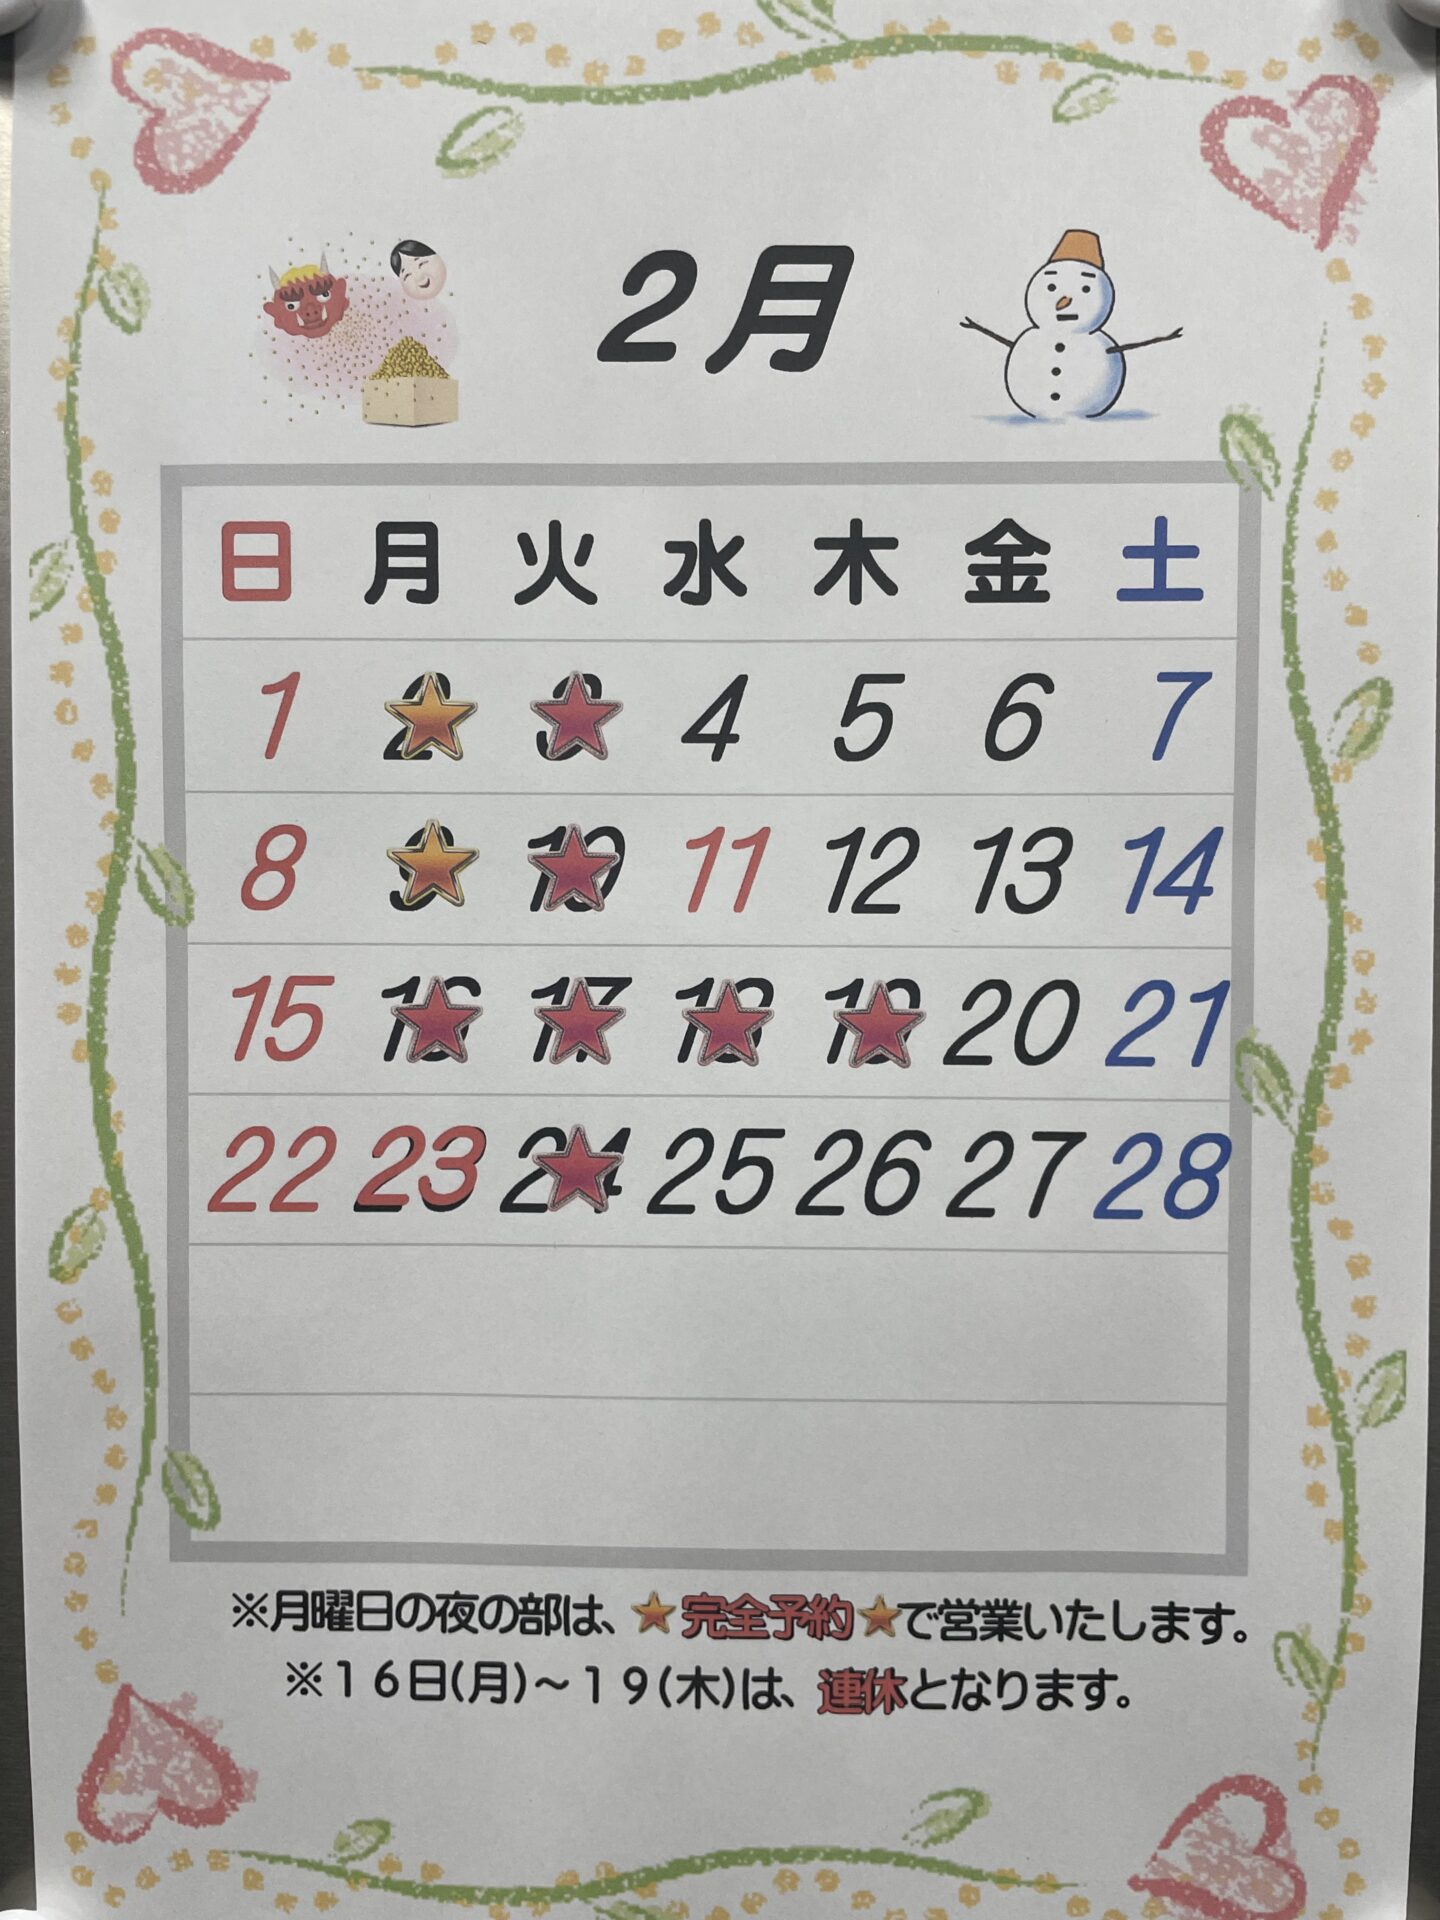 2月
日 月 火 水 木 金 土
1 2 3 4 5 6 7
8 9 10 11 12 13 14
15 16 17 18 19 20 21
22 23 24 25 26 27 28
※月曜日の夜の部は、★完全予約★で営業いたします。
※１６日(月)～１９(木)は、連休となります。